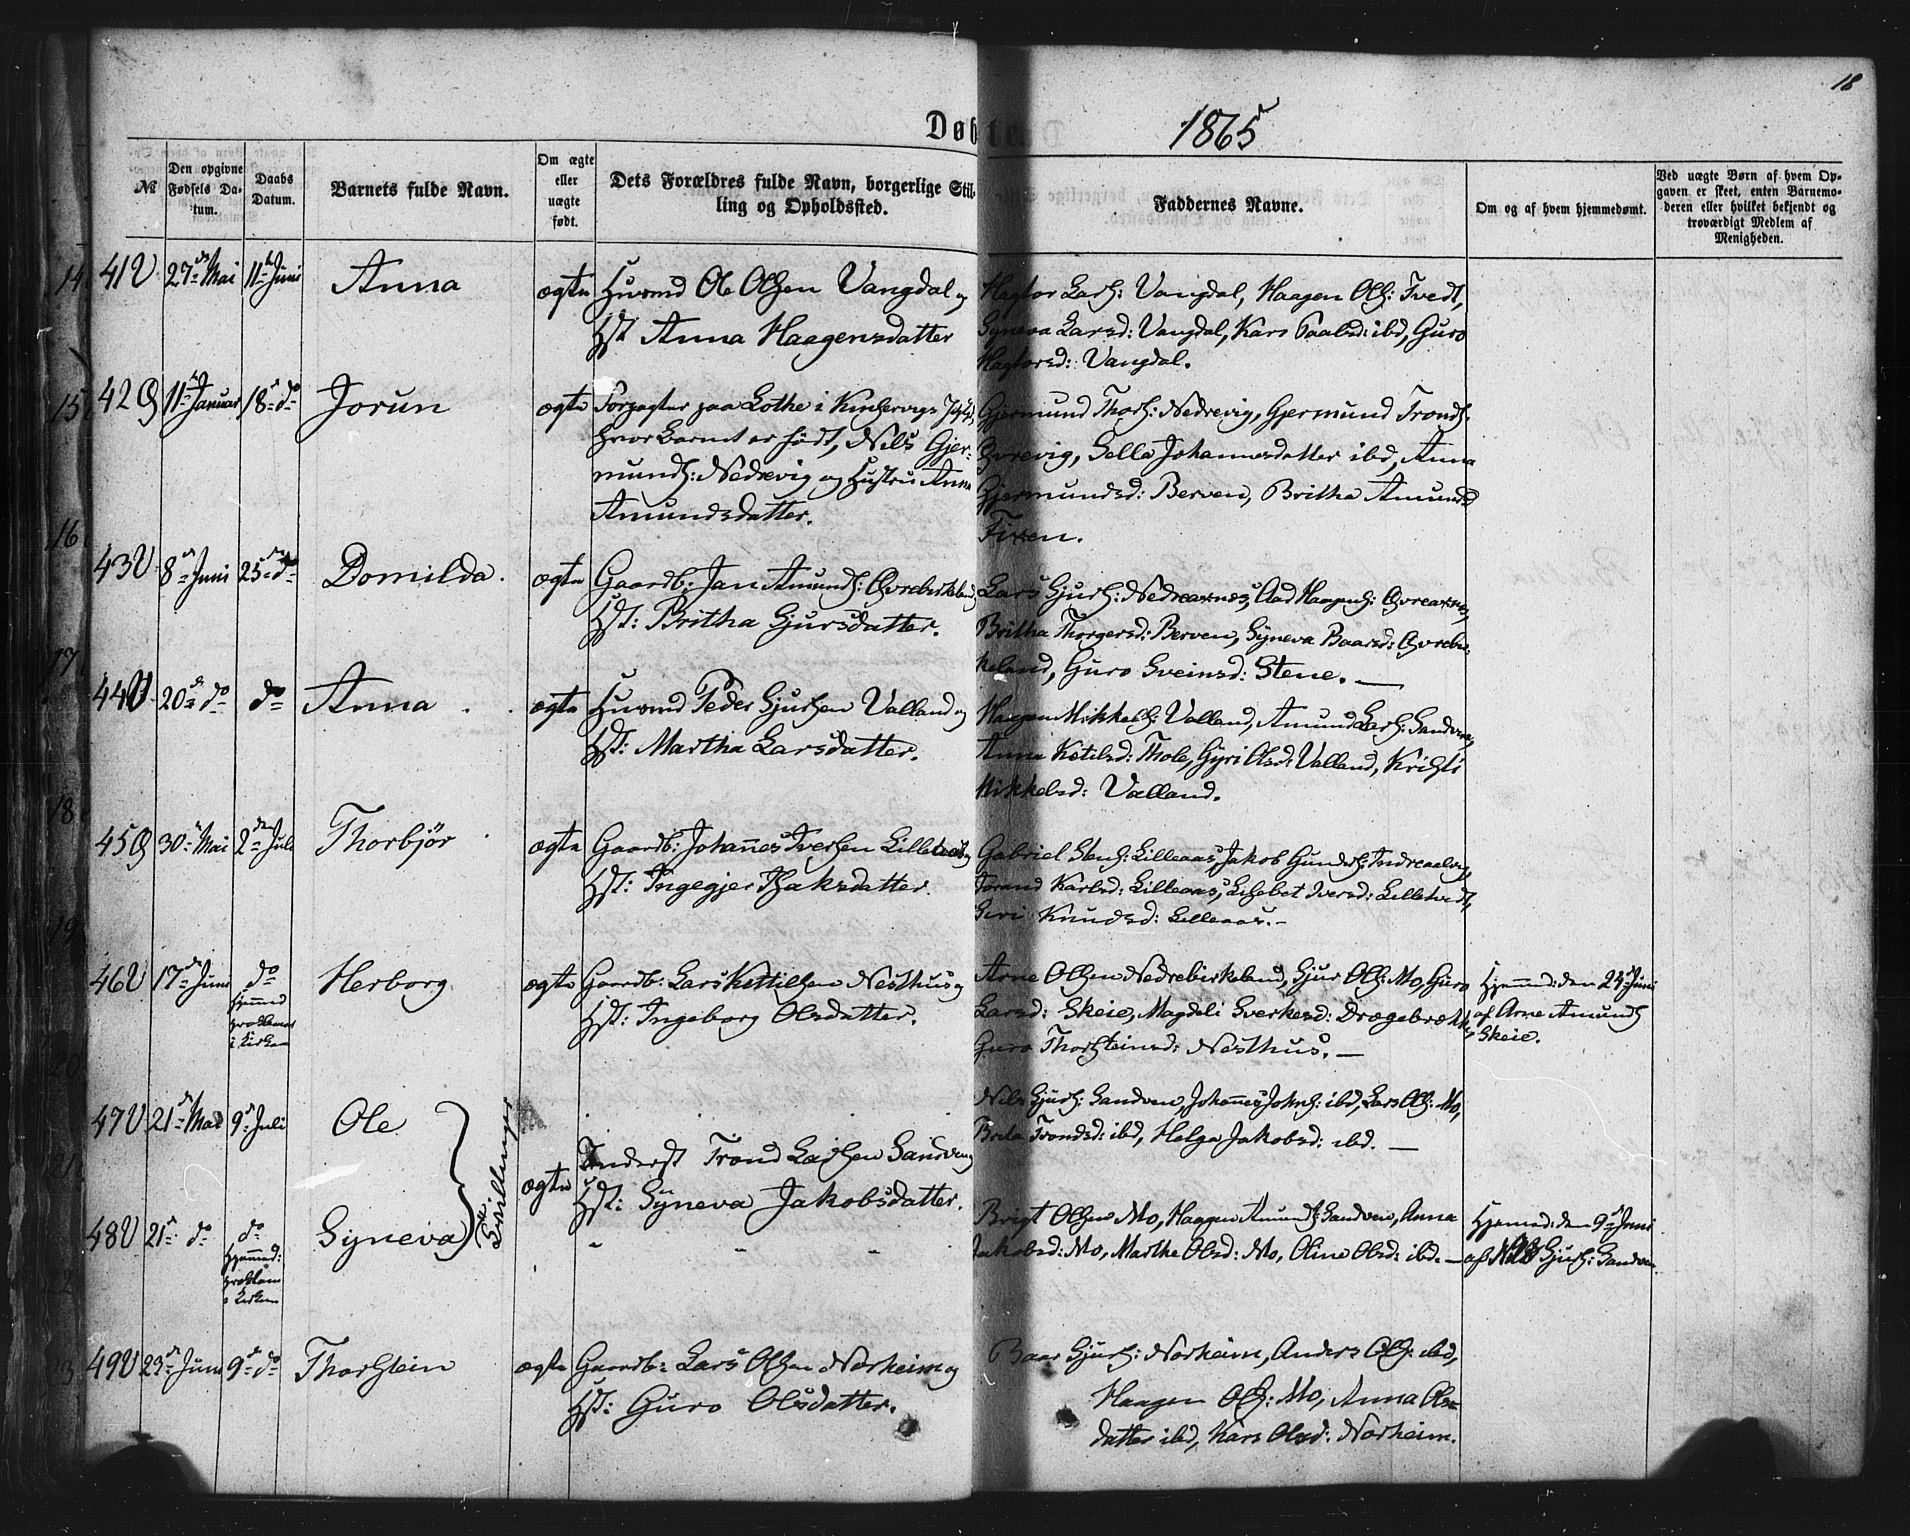 18
Døbte
1865
№
Den opgivne Fødsels Da-
tum.
Daabs
Datum.
Barnets fulde Navn.
Om ægte
eller
uægte
født.
Dets Forældres fulde Navn, borgerlige Stil-
ling og Opholdssted.
Faddernes Navne.
Om og af hvem hjemmedømt.
Ved uægte Børn af hvem Op-
gaven er skeet, enten Barnemo-
deren eller hvilket bekjendt og
troværdigt Medlem af
Menigheden.
41 U 27de Mai 11te Juni Anna ægte Husmd Ole Olsen Vangdal og
Hst Anna Haagensdatter
Hagtor Lars: Vangdal, Haagen Ols: Tvedt,
Syneva Larsd: Vangdal, Kari Paalsd: ibd, Guro
Hagtorsd: Vangdal.
42 Ø 11te Januar 18de do Jorun ægte Forpagter paa Lothe i Kinservigs
hvor Barnet er født, Nils Gjer-
munds: Nedrevig og Hustru Anna
Amundsdatter.
Gjermund Thors: Nedrevig, Gjermund Tronds:
Øvrevig, Sella Johannesdatter ibd, Anna
Gjermundsd: Berven, Britha Amundsd
Fixen.
43 U 8de Juni 25de do Domilda. ægte Gaardb: Jan Amunds: Øvrebirkeland
Hst: Britha Gjursdatter.
Lars Gjurs: Nedreaxnes, Aad Haagens: Øvreaxnes,
Britha Thorgersd: Berven, Syneva Baarsd: Øvrebir-
keland, Guro Sveinsd: Stene. —
44 U 20de do do Anna ægte Husmd Peder Gjursen Valland og
Hst: Martha Larsdatter.
Haagen Mikkels: Valland, Amund Lars: Sandven,
Anna Ketilsd: Thole, Gyri Olsd: Valland, Kristi
Mikkelsd: Valland.
45 Ø 30te Mai 2den Juli Thorbjør ægte Gaardb: Johannes Iversen Lilleaas og
Hst: Ingegjer Isaksdatter.
Gabriel Stens: Lilleaas, Jakob Gunders:
Torand Karlsd: Lilleaas, Lisabet Iversd: Lilletvedt,
Siri Knudsd: Lilleaas. —
46 U 17de Juni do
hjemmed
i Kirken
Herborg ægte Gaardb: Lars Kettilsen Nesthus og
Hst: Ingeborg Olsdatter.
Arne Olsen Nedrebirkeland, Gjur Ols: Mo, Guro
Larsd: Skeie, Magdeli Sverkesd: Drægebrække,
Guro Thorsteinsd: Nesthus. —
Hjemmed: den 24de Juni
af Arne Amunds
Skeie.
47 U 21de Mai 9de Juli Ole
Tvillinger
ægte Inderst Trond Larsen Sandven og
Hst: Syneva Jakobsdatter.
Nils Gjurs: Sandven, Johannes Johns: ibd, Lars Ols: Mo,
Brita Trondsd: ibd, Helga Jakobsd: ibd. —
48 U 21de do do
Hjemmed:
Syneva
Brigt Olsen Mo, Haagen Amunds: Sandven, Anna
Jakobsd: Mo, Martha Olsd: Mo, Oline Olsd: ibd. —
Hjemmed: den 9de Juni
af Nils Gjurs: Sandven.
49 U 23de Juni 9de do Thorstein ægte Gaardb: Lars Olsen Norheim og
Hst: Guro Olsdatter.
Baar Gjurs: Norheim, Anders Ols: ibd,
Haagen Ols: Mo, Anna Ols-
datter ibd, Kari Olsd: Norheim.